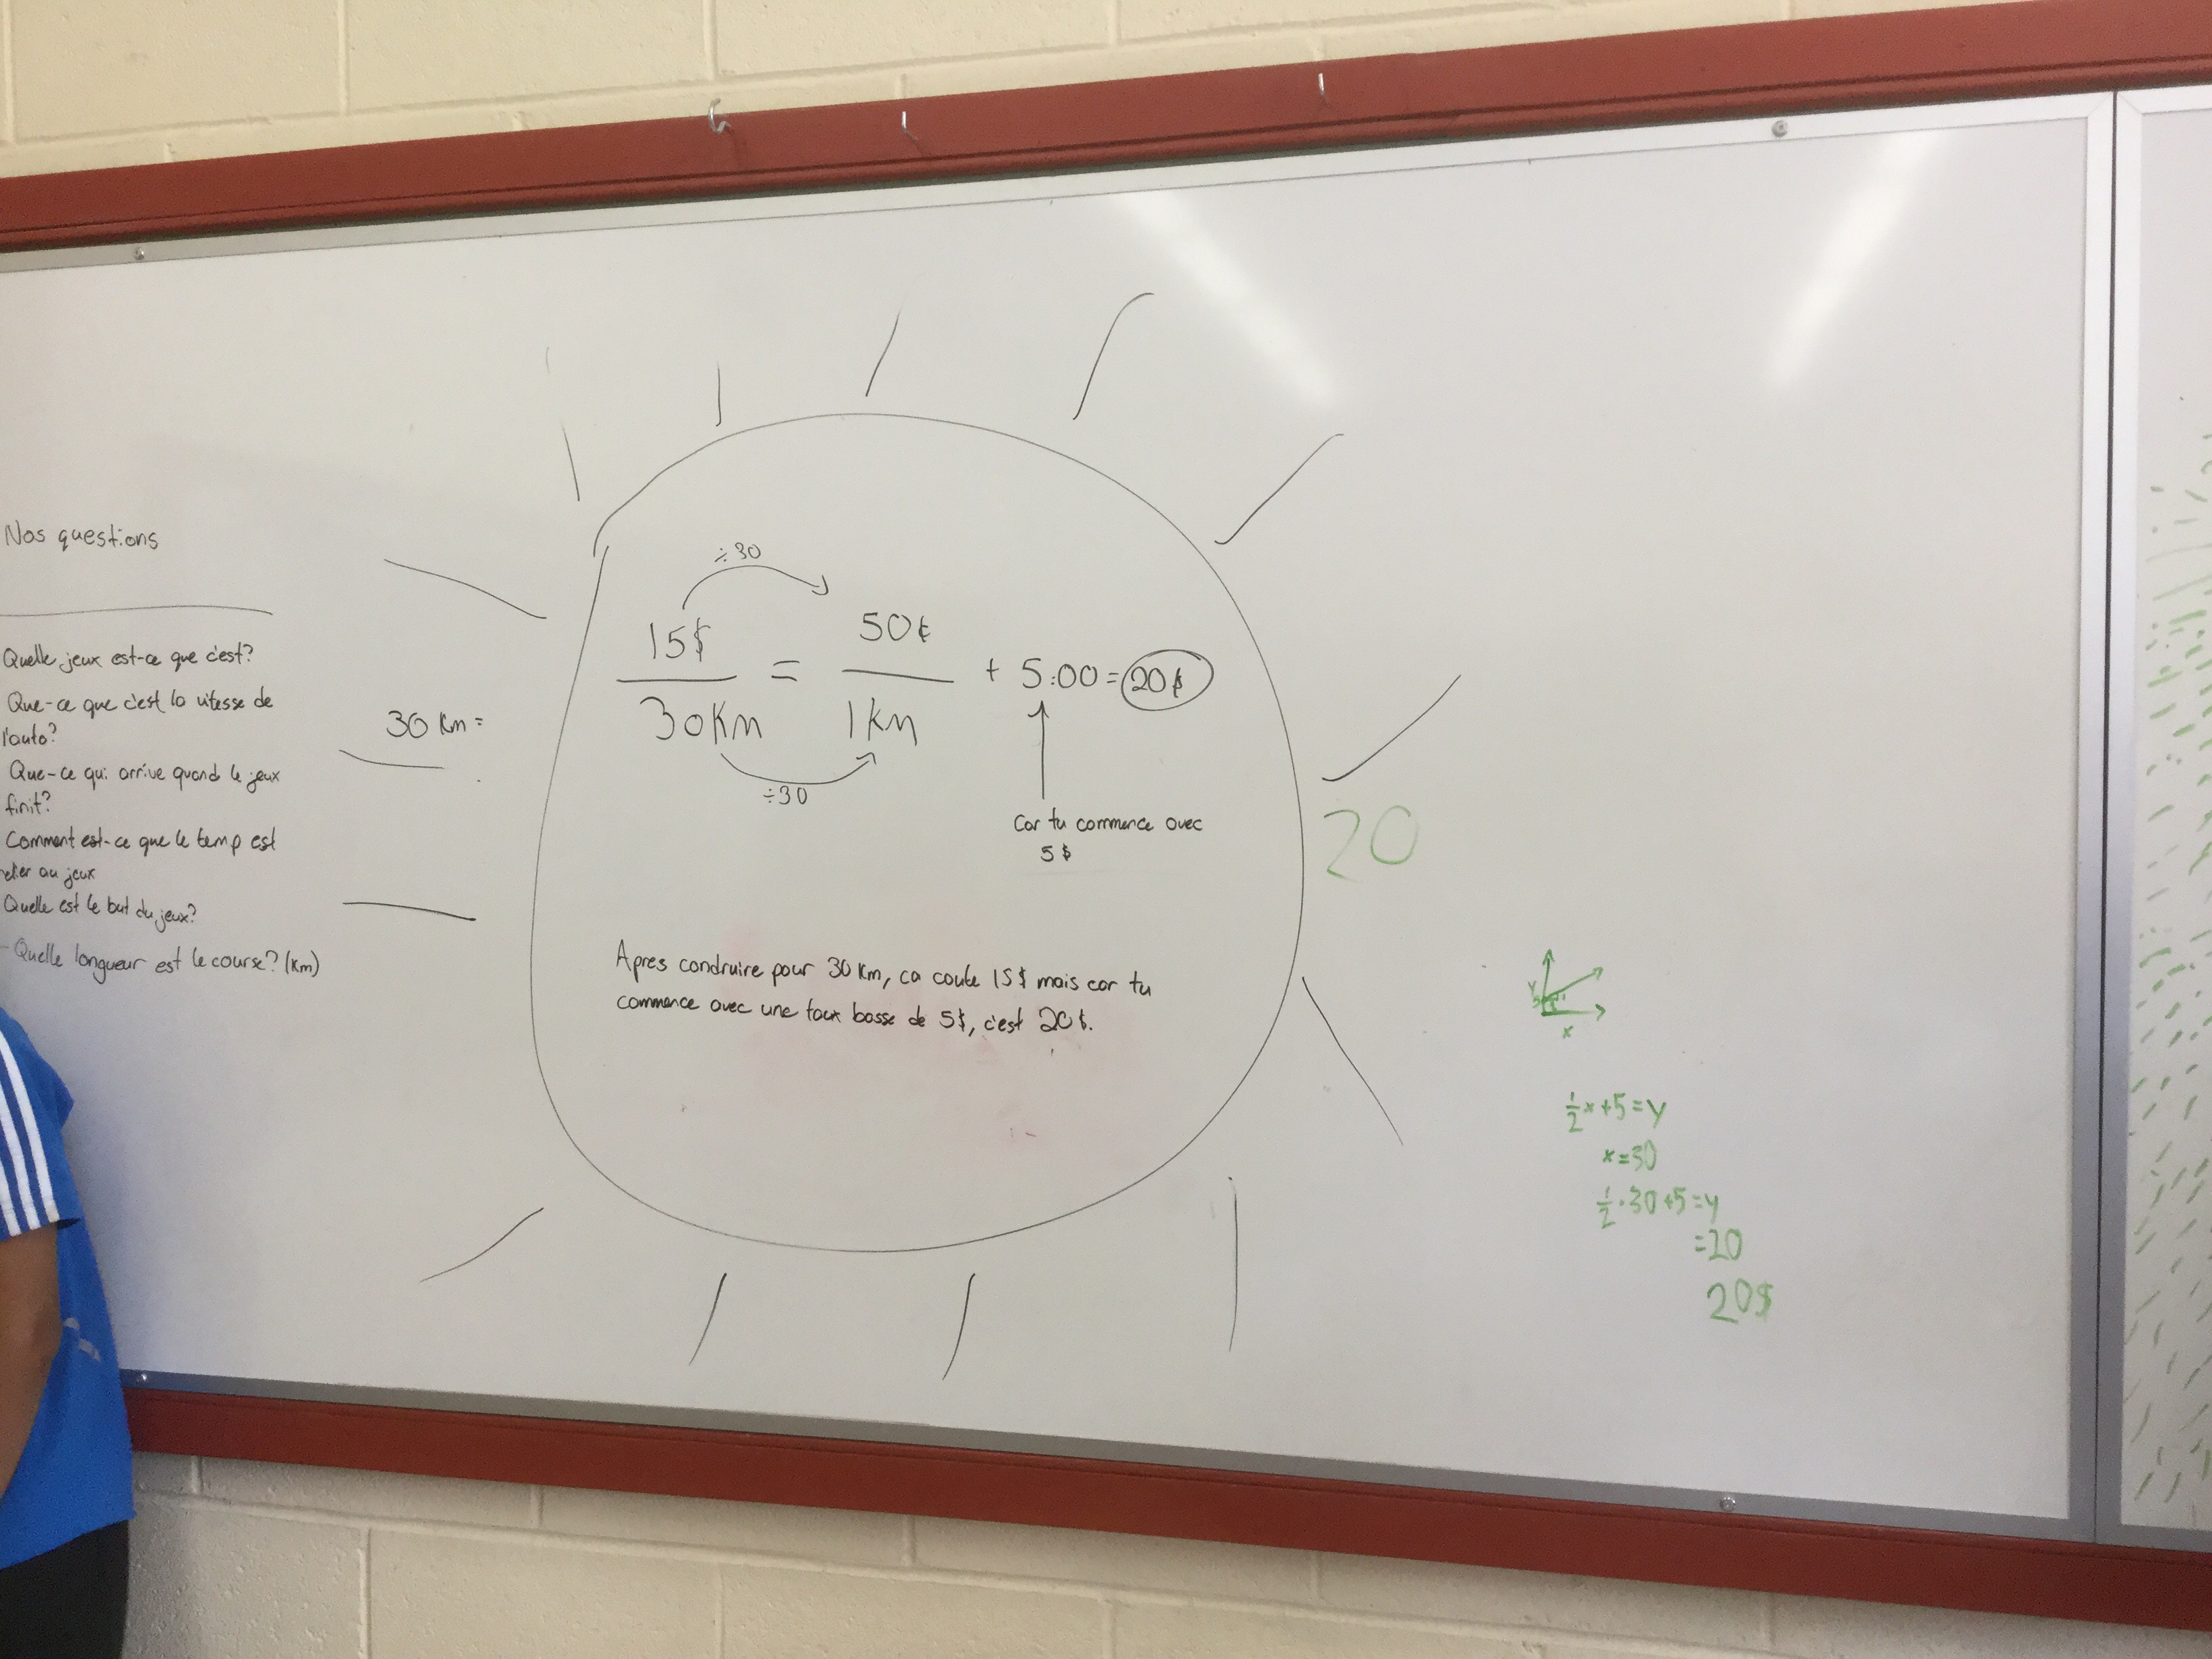 Nos questions
Quelle jeux est-ce que c'est?
Que-ce que c'est la vitesse de
l'auto?
Que-ce qui arrive quand le jeux
finit?
Comment est-ce que le temp est
relier au jeux
Quelle est le but du jeux?
- Quelle longueur est le course? (Km)
30 Km =
÷30
15$
30Km
=
50¢
1km
÷30
+ 5.00 = 20$
Car tu commence avec
5$
Apres condruire pour 30 Km, ca coute 15$ mais car tu
commence avec une taux basse de 5$, c'est 20$.
20
y
5
x
1/2 x + 5 = y
x = 30
1/2 · 30 + 5 = y
= 20
20$